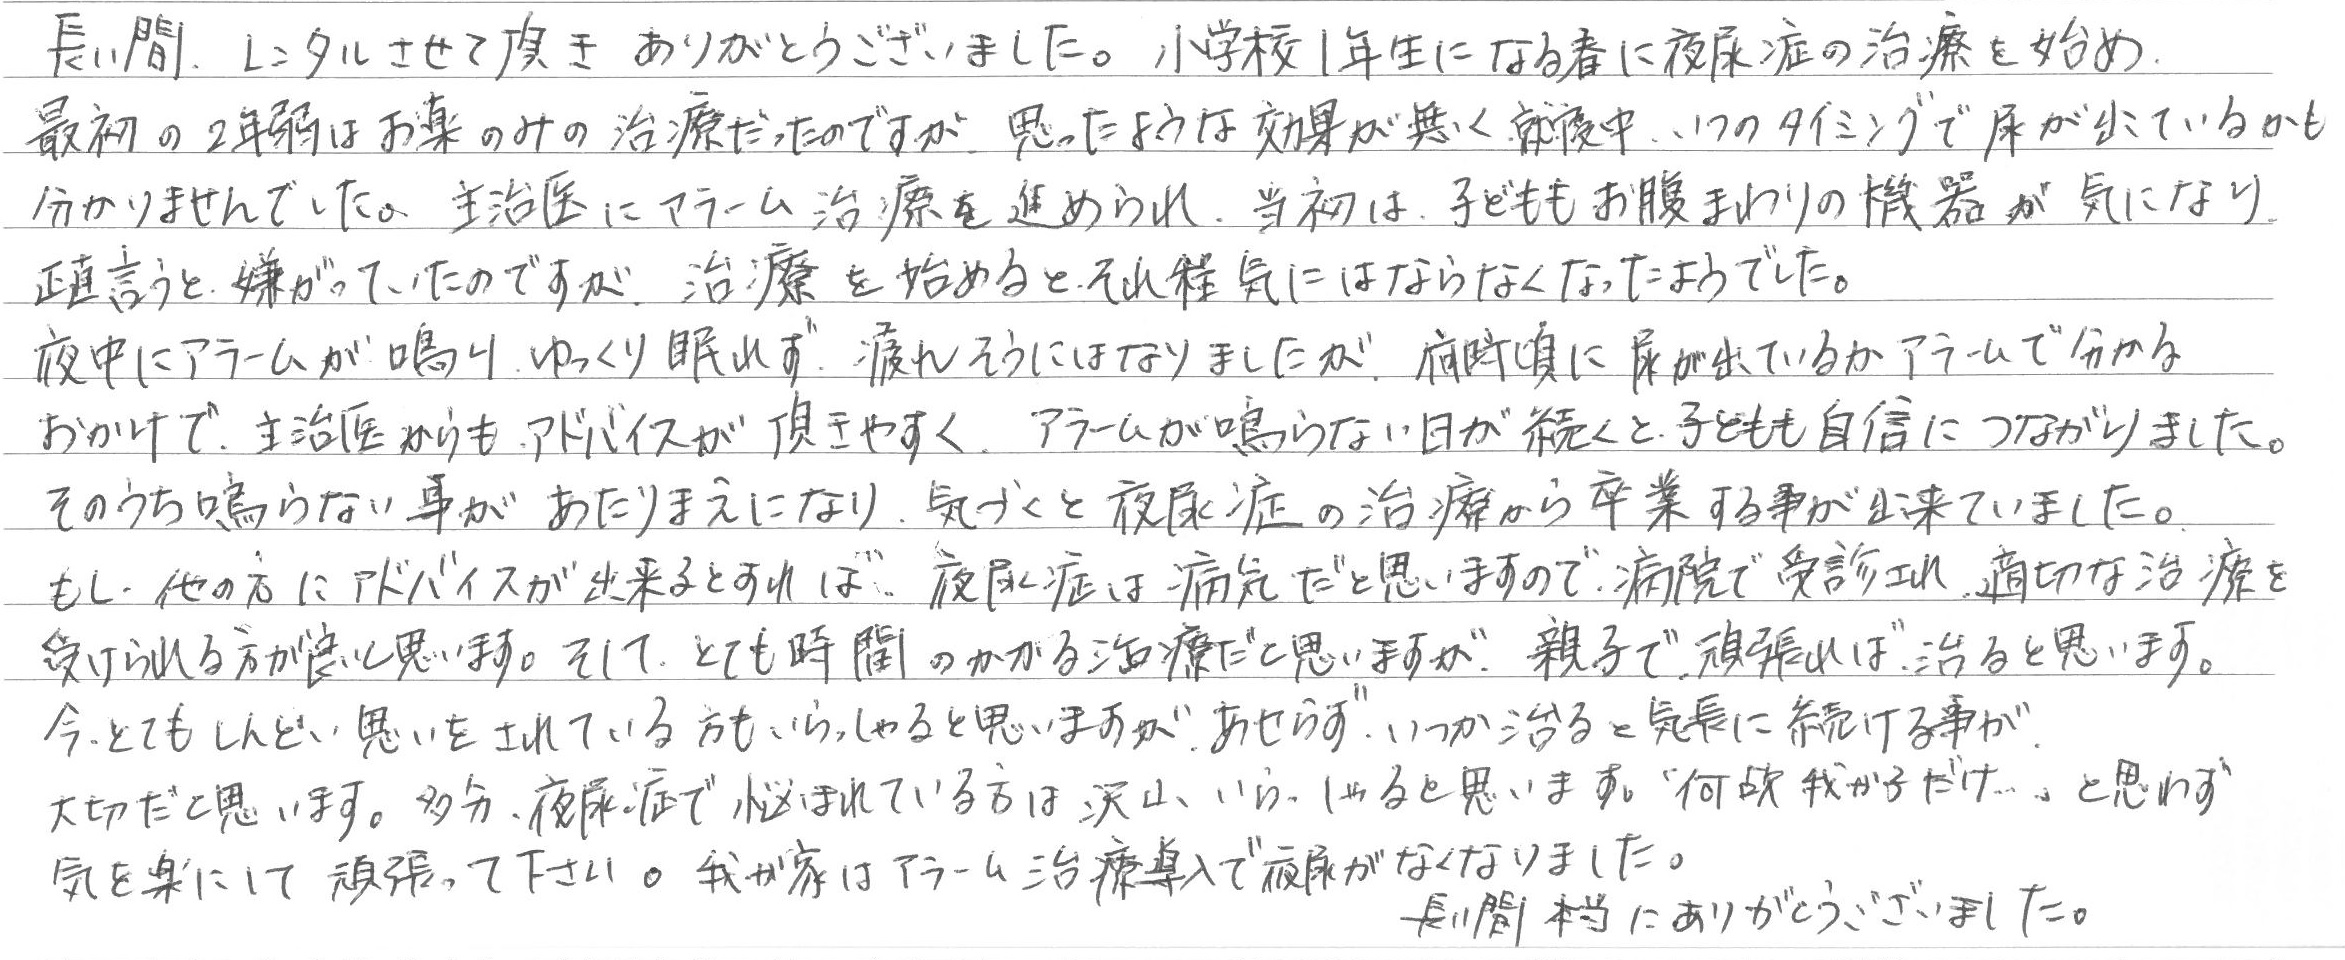 長い間、レンタルさせて頂き ありがとうございました。小学校1年生になる春に夜尿症の治療を始め、
最初の2年弱はお薬のみの治療だったのですが、思ったような効果が無く、就寝中、いつのタイミングで尿が出ているかも
分かりませんでした。主治医にアラーム治療を進められ、当初は、子どももお腹まわりの機器が気になり、
正直言うと、嫌がっていたのですが、治療を始めると、それ程気にはならなくなったようでした。
夜中にアラームが鳴り、ゆっくり眠れず、疲れそうにはなりましたが、何時頃に尿が出ているかアラームで分かる
おかげで、主治医からも、アドバイスが頂きやすく、アラームが鳴らない日が続くと、子どもも自信につながりました。
そのうち鳴らない事があたりまえになり、気づくと夜尿症の治療から卒業する事が出来ていました。
もし、他の方にアドバイスが出来るとすれば、夜尿症は病気だと思いますので、病院で受診され、適切な治療を
受けられる方が良いと思います。そして、とても時間のかかる治療だと思いますが、親子で、頑張れば、治ると思います。
今、とてもしんどい思いをされている方もいらっしゃると思いますが、あせらず、いつか治ると気長に続ける事が、
大切だと思います。多分、夜尿症で悩まれている方は沢山、いらっしゃると思います。「何故我が子だけ…」と思わず
気を楽にして頑張って下さい。我が家はアラーム治療導入で夜尿がなくなりました。
長い間本当にありがとうございました。